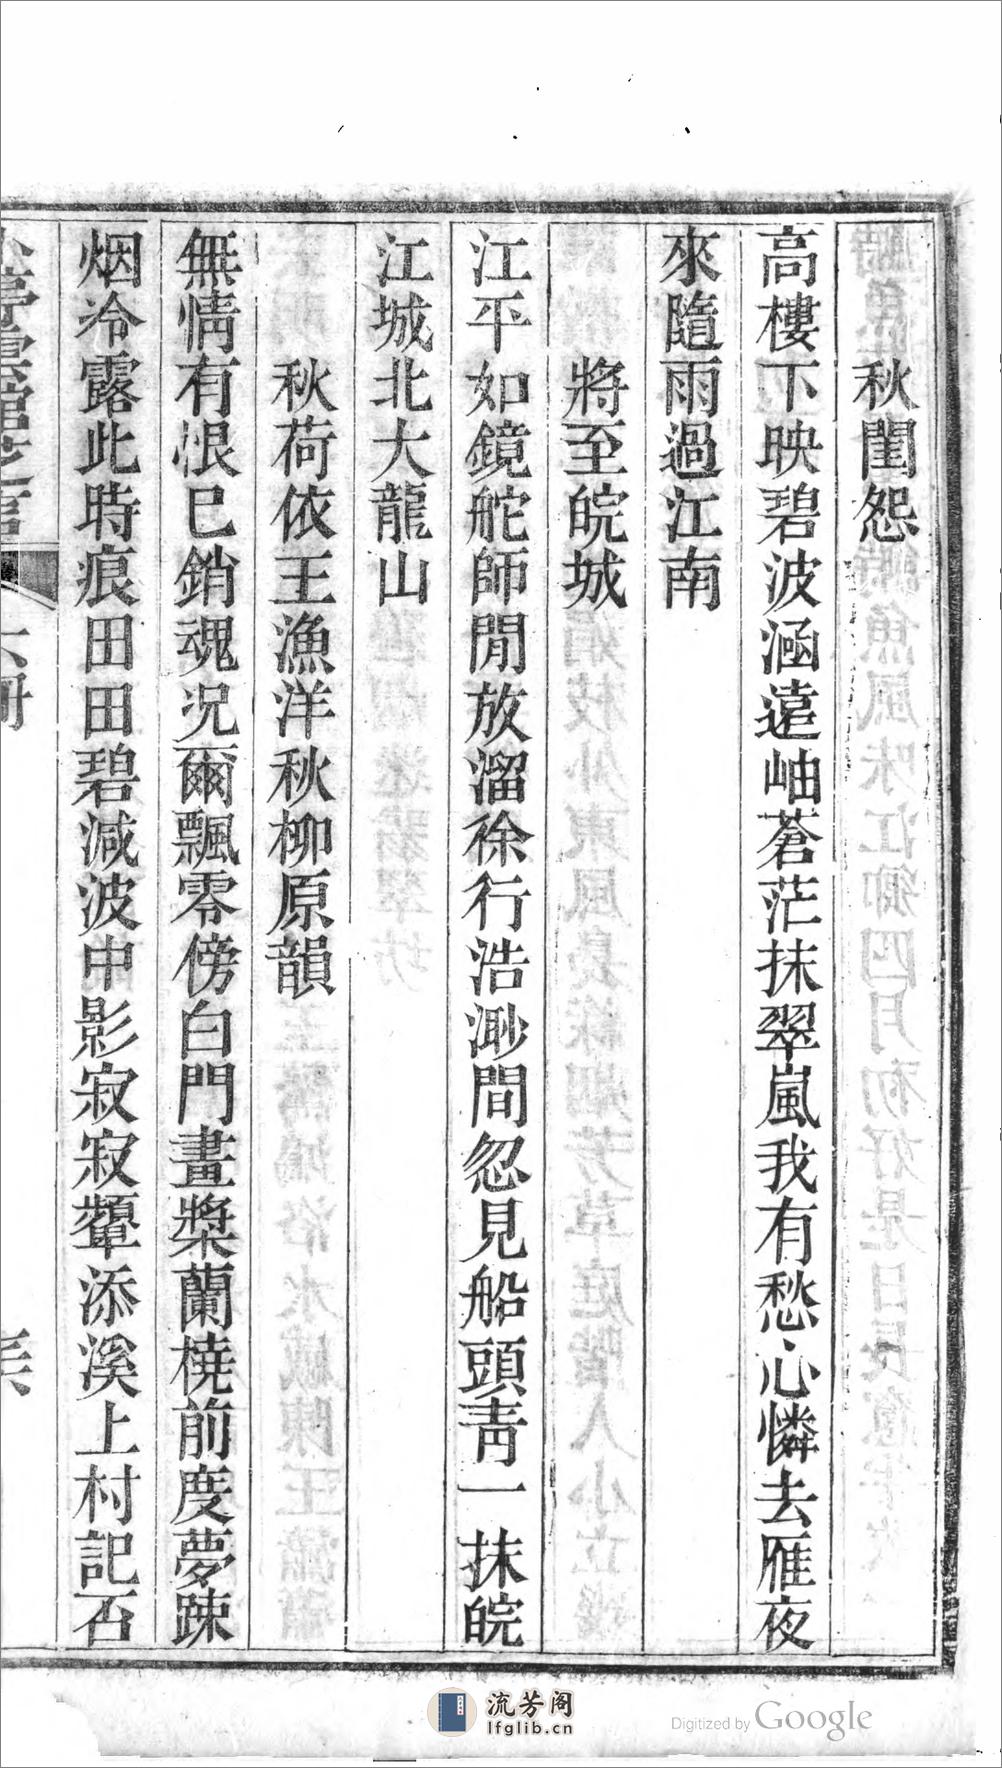 秋閨怨
高樓下映碧波涵遠岫蒼茫抹翠嵐我有愁心憐去雁夜
來隨雨過江南
將至皖城
江平如鏡舵師閒放溜徐行浩渺間忽見船頭靑一抹皖
江城北大龍山
秋荷依王漁洋秋柳原韻
無情有恨已銷魂况爾飄零傍白門畫槳蘭橈前度夢疎
烟冷露此時痕田田碧減波中影寂寂顰添溪上村記否
流芳阁
lfglib.cn
Digitized by Google